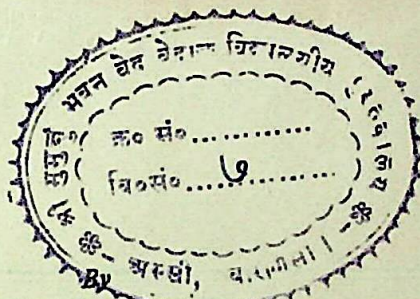 मुमुक्षु भवन वेद वेदाङ्ग विद्यालयीय पुस्तकालय
क्र० सं०............
वि०सं०...७.........
अस्सी, वाराणसी।
By